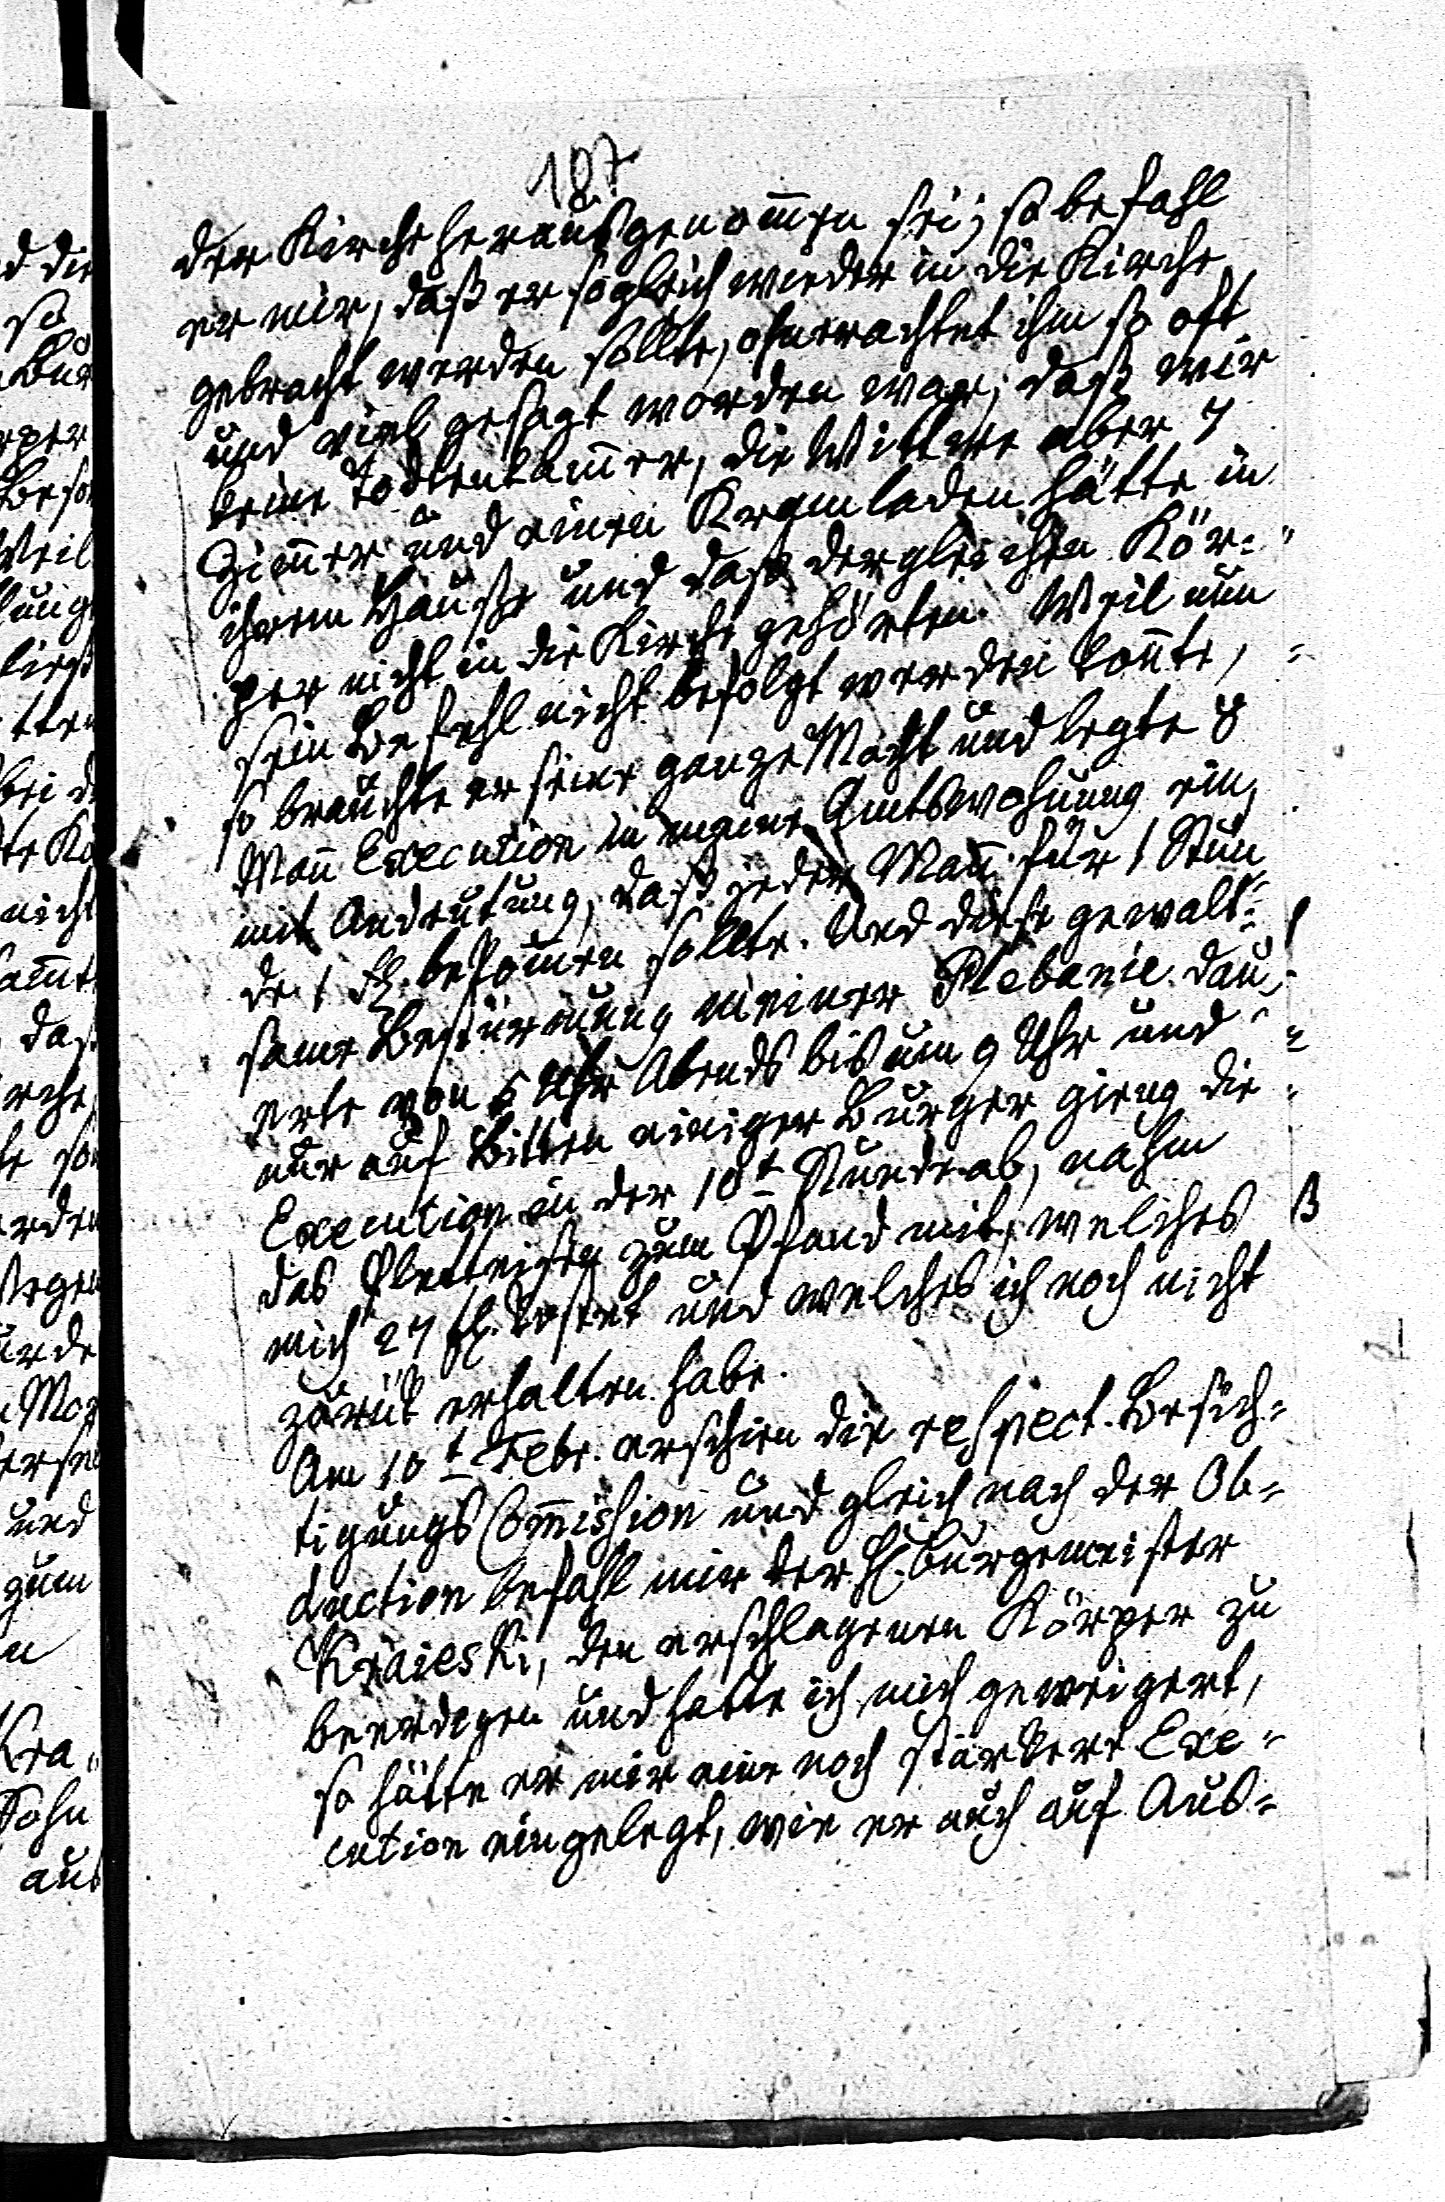 187
der Kirche herausgenom̄en sei; so befahl
er mir, daß er sogleich wieder in die Kirche
gebracht werden sollte, ohnerachtet ihm so oft
und viel gesagt worden war, daß wir
keine Todtenkam̄er, die Wittwe aber 7
Zim̄er und einen Kramladen hätte in
ihrem Hauße und daß dergleichen Kör-
per nicht in die Kirche gehörten. Weil nun
sein Befehl nicht befolgt werden kon̄te,
so brauchte er seine ganze Macht und legte 8
Man̄ Execution in meine Amtswohnung ein,
mit Andeutung, daß jeder Man̄ für 1 Stun
de 1 fl. bekom̄en sollte. Und diese gewalt-
same Bestürmung meiner Plebanie dau-
erte von 5 Uhr Abends bis um 9 Uhr und
nur auf Bitten einiger Burger gieng die
Execution in der 10t Stunde ab, nahm
das Pletteisen zum Pfand mit, welches
mich 27 fl. kostet und welches ich noch nicht
zurük erhalten habe.
Am 10t Febr. erschien die respect. Besich-
tigungs Com̄ission und gleich nach der Ob-
duction befahl mir der H. Burgemeister
Kraieski, den erschlagenen Körper zu
beerdigen und hätte ich mich geweigert,
so hätte er mir eine noch stärkere Exe-
cution eingelegt, wie er auch auf Aus-